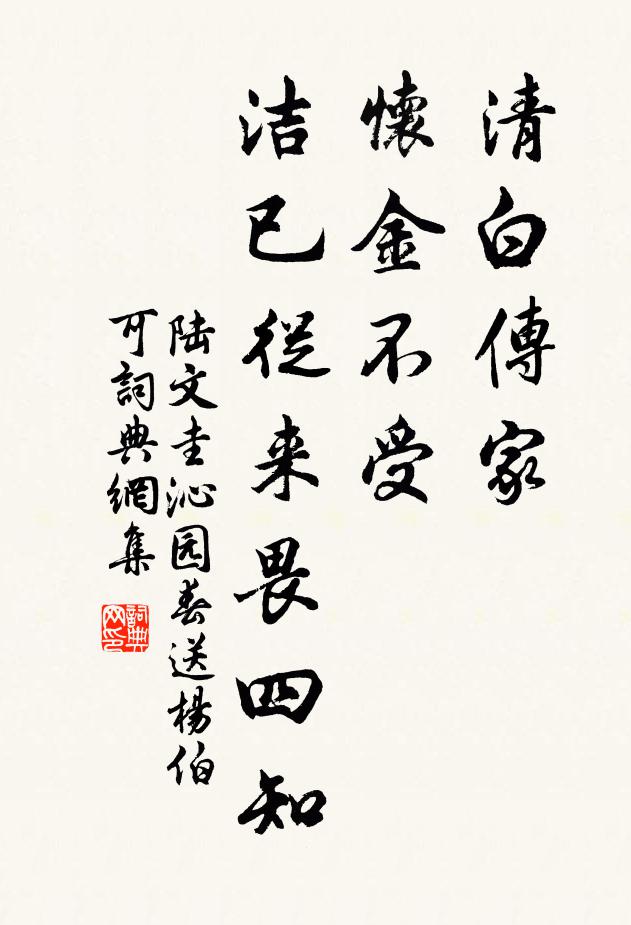 清白傳家
懷金不受
洁已從来畏四知
陆文圭沁园春送楊伯
可詞典網集
詞典
网印